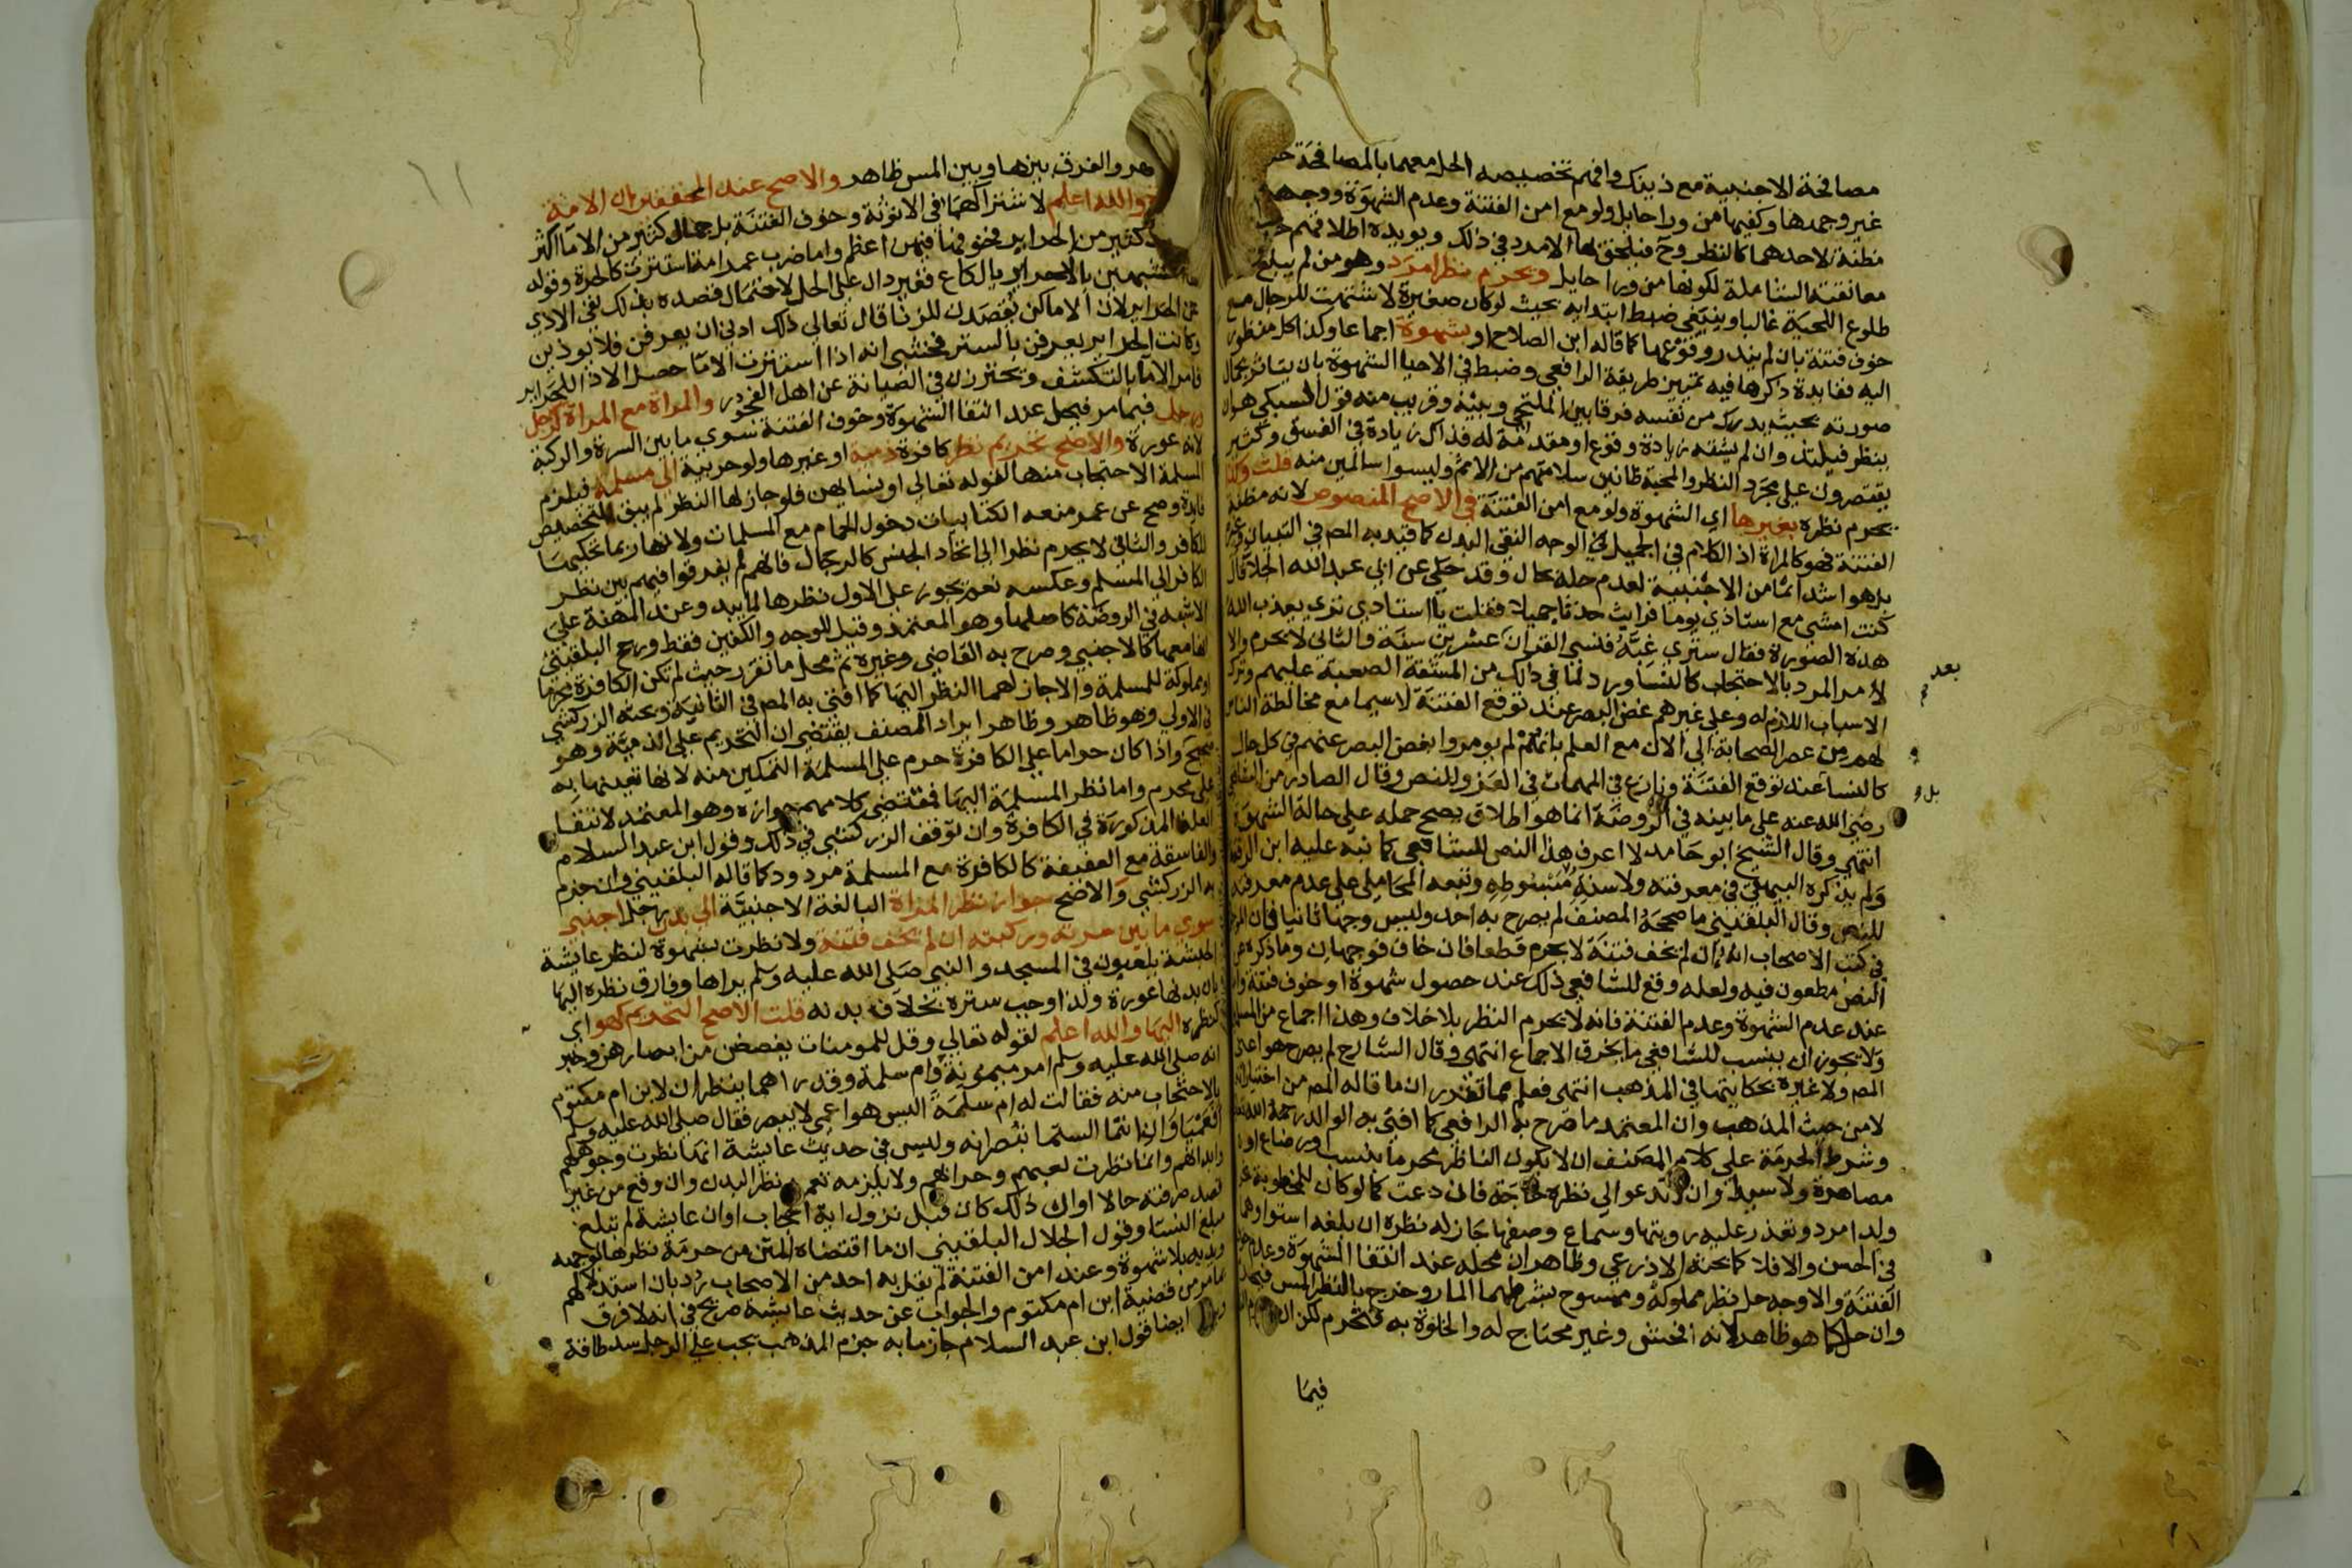 مصافحة الاجنبية مع ذينك وافهم تخصيصه الحل معهما بالمصافحة
غير وجهها وكفيها من ورا حايل ولو مع امن الفتنة وعدم الشهوة ووجهه
مظنة لاحدهما كالنظر وح فيلحق بها الامرد في ذلك ويويده اطلاقهم
معانقته الشاملة لكونها من ورا حايل ويحرم نظر امرد وهو من لم يبلغ
طلوع اللحية غالبا وينبغي ضبط ابتدايه بحيث لو كان صغيرة لاشتهيت للرجال مع
خوف فتنة بان لم يندر وقوعها كما قاله ابن الصلاح او بشهوة اجماعا وكذا كل منظور
اليه ففايدة ذكرها فيه تمييز طريقة الرافعي وضبط في الاحيا الشهوة بان يتاثر بجمال
صورته بحيث يدرك من نفسه فرقا بين الملتحي وبينه وقريب منه قول السبكي هي ان
ينظر فيلتذ وان لم يشته زيادة وقوع او مقدمة له فذاك زيادة في الفسق وكثير
يقتصرون على مجرد النظر والمحبة ظانين سلامتهم من الاثم وليسوا سالمين منه قلت وكذا
يحرم نظره بغيرها اي الشهوة ولو مع امن الفتنة في الاصح المنصوص لانه مظنة
الفتنة فهو كالمراة اذ الكلام في الجميل في الوجه النقي البدن كما قيد به المصـ في التبيان وغيره
بل هو اشد اثما من الاجنبية لعدم حله بحال وقد حكي عن ابي عبد الله الجلا قال
كنت امشي مع استاذي يوما فرايت حدثا جميلا فقلت يا استاذي تري يعذب الله
هذه الصورة فقال ستري غبه فنسي القران عشرين سنة والثاني لا يحرم والا
لامر المرد بالاحتجاب كالنسا ورد لما في ذلك من المشقة الصعبة عليهم وترك
الاسباب اللازم له وعلى غيرهم غض البصر عند توقع الفتنة لاسيما مع مخالطة الناس
لهم من عصر الصحابة الي الان مع العلم بانهم لم يومروا بغض البصر عنهم في كل حال
كالنسا عند توقع الفتنة ونازع في المهمات في العزو للنص وقال الصادر من الشافعي
رضي الله عنه على ما بينه في الروضة انما هو اطلاق يصح حمله على حالة الشهوة
انتهي وقال الشيخ ابو حامد لا اعرف هذا النص للشافعي كما نبه عليه ابن الرفعة
ولم يذكره البيهقي في معرفته ولا سننه ومبسوطه وتبعه المحاملي على عدم معرفته
للنص وقال البلقيني ما صححه المصنف لم يصرح به احد وليس وجها ثانيا فان الموجود
في كتب الاصحاب انه ان لم يخف فتنة لا يحرم قطعا فان خاف فوجهان وما ذكره عن
النص مطعون فيه ولعله وقع للشافعي ذلك عند حصول شهوة او خوف فتنة واما
عند عدم الشهوة وعدم الفتنة فانه لا يحرم النظر بلا خلاف وهذا اجماع من المسلمين
ولا يجوز ان ينسب للشافعي ما يخرق الاجماع انتهي وقال الشارح لم يصرح هو اعني
المصـ ولا غيره بحكايتها في المذهب انتهى فعلم مما تقدر ان ما قاله المصـ من اختياراته
لا من حيث المذهب وان المعتمد ما صرح به الرافعي كما افتى به الوالد رحمه الله تعالى
وشرط الحرمة على كلام المصنف ان لا يكون الناظر محرما بنسب ورضاع او
مصاهرة ولا سيدا وان لا تدعو الي نظره حاجة فان دعت كما لو كان للمخطوبة نحو
ولد امرد وتعذر عليه رويتها وسماع وصفها جاز له نظره ان بلغه استواوهما
في الحسن والافلا كما بحثه الاذرعي وظاهر ان محله عند انتفا الشهوة وعدم خوف
الفتنة والاوجه حل نظر مملوكه وممسوح بشرطهما المار وخرج بالنظر المس فيحرم
وان حل كما هو ظاهر لانه افحش وغير محتاج له والخلوة به فتحرم لكن ان
فيما
بعد
بل و
١١
هر والفرق بينها وبين المس ظاهر والاصح عند المحققين ان الامة
والله اعلم لاشتراكهما في الانوثة وخوف الفتنة بل جمال كثير من الاما اكثر
كثير من الحراير فخوفها فيهن اعظم واما ضرب عمر امة استترت كالحرة وقوله
تتشبهين بالاحراير يا لكاع فغير دال على الحل لاحتمال قصده بذلك نفي الاذي
عن الحراير لان الاما كن يقصدن للزنا قال تعالى ذلك ادنى ان يعرفن فلا يوذين
وكانت الحراير يعرفن بالستر فخشي انه اذا استترت الاما حصل الاذا للحراير
فامر الاما بالتكشف ويحترزن في الصيانة عن اهل الفجور والمراة مع المراة كرجل
ورجل فيما مر فيحل عند انتفا الشهوة وخوف الفتنة سوى ما بين السرة والركبة
لانه عورة والاصح تحريم نظر كافرة ذمية او غيرها ولو حربية الى مسلمة فيلزم
المسلمة الاحتجاب منها لقوله تعالى او نسايهن فلو جاز لها النظر لم يبق للتخصيص
فايدة وصح عن عمر منعه الكتابيات دخول الحمام مع المسلمات ولانها ربما تحكيها
للكافر والثاني لا يحرم نظرا الى اتحاد الجنس كالرجال فانهم لم يفرقوا فيهم بين نظر
الكافر الى المسلم وعكسه نعم يجوز على الاول نظرها لما يبد وعند المهنة على
الاشبه في الروضة كاصلها وهو المعتمد وقيل للوجه والكفين فقط ورجح البلقيني
انها معها كالاجنبي وصرح به القاضي وغيره ثم محل ما تقرر حيث لم تكن الكافرة محرما
او مملوكة للمسلمة والاجاز لهما النظر اليها كما افتي به المصـ في الثانية وبحثه الزركشي
في الاولي وهو ظاهر وظاهر ايراد المصنف يقتضي ان التحريم على الذمية وهو
صحيح واذا كان حراما على الكافرة حرم على المسلمة التمكين منه لانها تعينها به
على محرم واما نظر المسلمة اليها فمقتضي كلامهم جوازه وهو المعتمد لانتفا
العلة المذكورة في الكافرة وان توقف الزركشي في ذلك وقول ابن عبد السلام
والفاسقة مع العفيفة كالكافرة مع المسلمة مردود كما قاله البلقيني وان جزم
به الزركشي والاصح جواز نظر المراة البالغة الاجنبية الي بدن رجل اجنبي
سوى ما بين سرته وركبته ان لم تخف فتنة ولا نظرت بشهوة لنظر عايشة
الحبشة يلعبون في المسجد والنبي صلى الله عليه وسلم يراها وفارق نظره اليها
بان بدنها عورة ولذا وجب ستره بخلاف بدنه قلت الاصح التحريم كهو اي
كنظره اليها والله اعلم لقوله تعالي وقل للمومنات يغضضن من ابصارهن وخبر
انه صلى الله عليه وسلم امر ميمونة وام سلمة وقد راهما ينظران لابن ام مكتوم
بالاحتجاب منه فقالت له ام سلمة اليس هو اعمي لا يبصر فقال صلى الله عليه وسلم
افعمياوان انتما الستما تبصرانه وليس في حديث عايشة انها نظرت وجوههم
وابدانهم وانما نظرت لعبهم وحرابهم ولا يلزمه تعمد نظر البدن وان وقع من غير
قصد صرفته حالا او ان ذلك كان قبل نزول اية الحجاب او ان عايشة لم تبلغ
مبلغ النسا وقول الجلال البلقيني ان ما اقتضاه المتن من حرمة نظرها لوجهه
ويديه بلا شهوة وعند امن الفتنة لم يقل به احد من الاصحاب رد بان استدلالهم
بما مر من قضية ابن ام مكتوم والجواب عن حديث عايشة صريح في انه لا فرق
ايضا قول ابن عبد السلام جازما به جزم المذهب يجب على الرجل سد طاقة